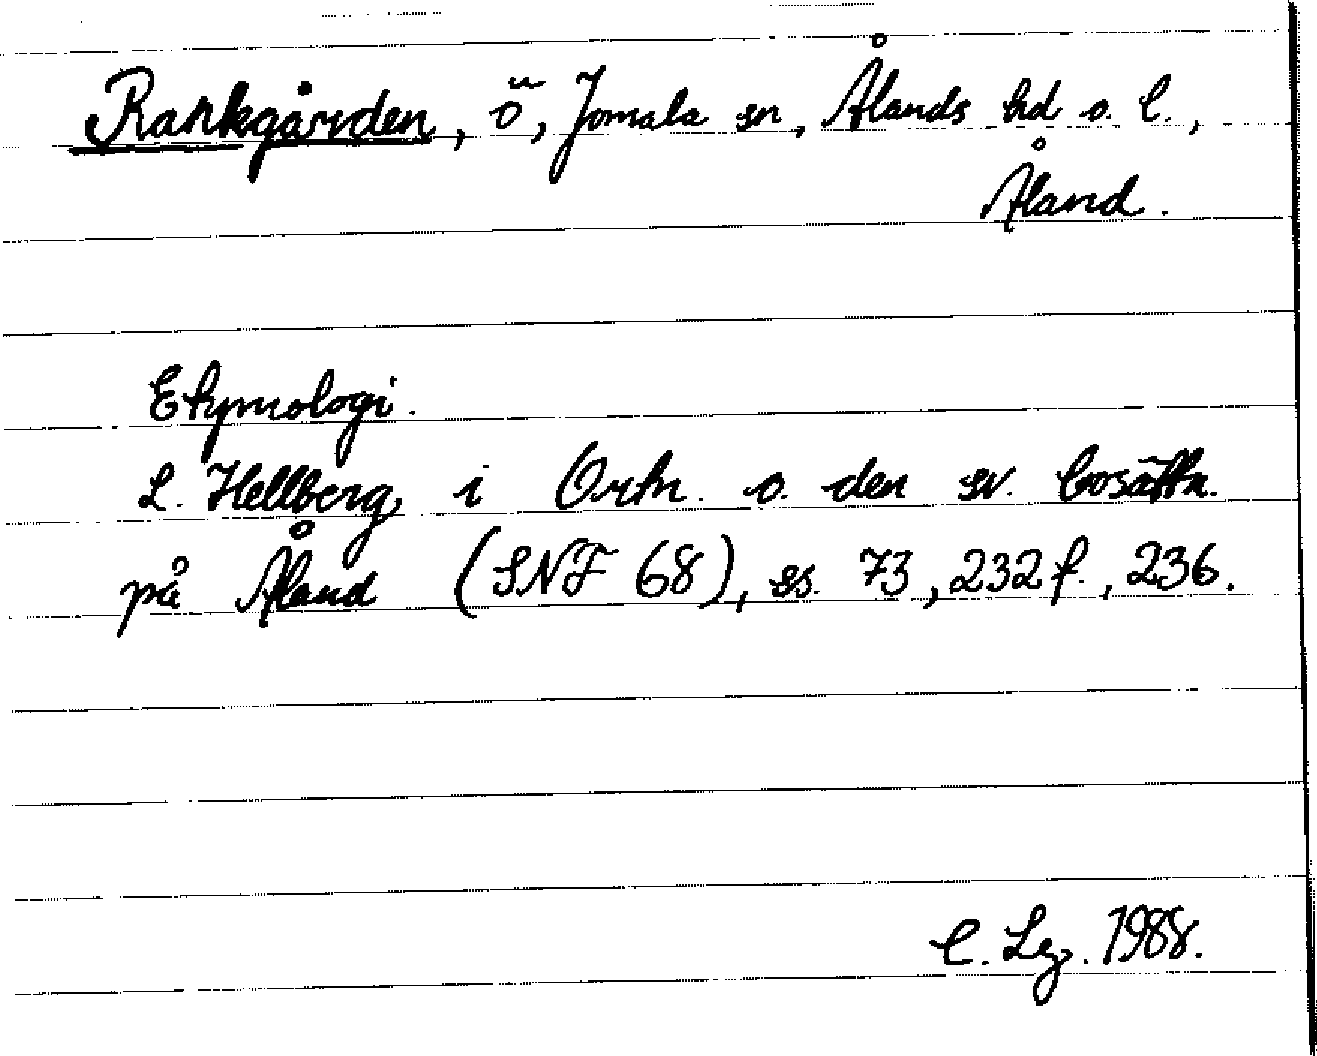 Rankgården, ö, Jomala sn, Ålands hd o. l.,
Åland.
Etymologi.
L. Hellberg i Ortn. o. den sv. bosättn.
på Åland (SNF 68), ss. 73, 232 f., 236.
C. Lg. 1988.